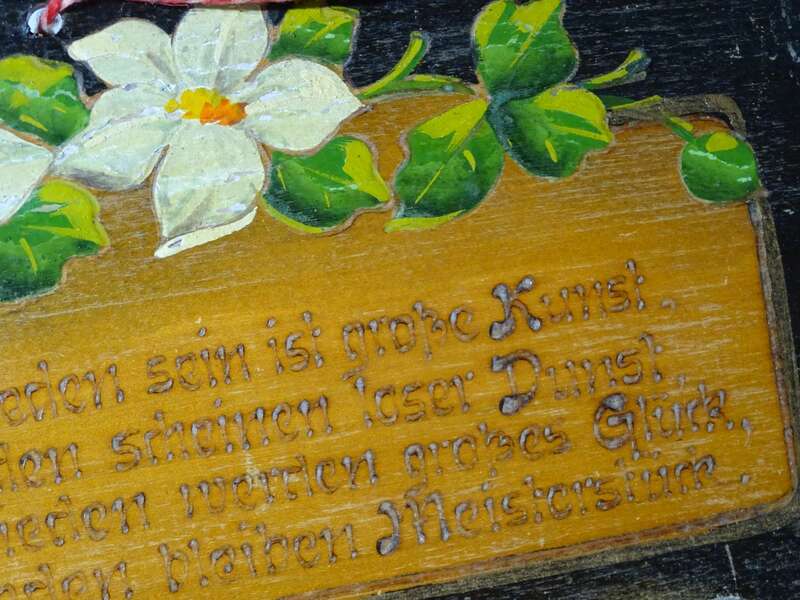 eden sein ist große Kunst,
den scheinen loser Dunst,
ieden werden großes Glück,
nden bleiben Meisterstück.